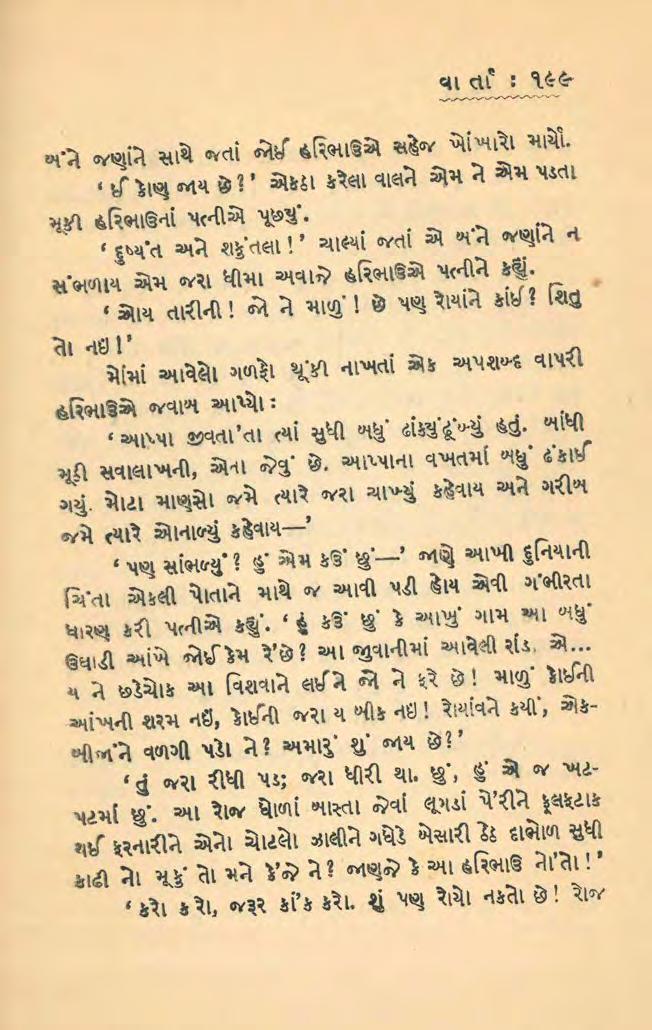 વા ર્તા : ૧૯૯
બંને જણાંને સાથે જતાં જોઈ હરિભાઉએ સહેજ ખોંખારો માર્યો.
‘ ઈ કોણ જાય છે ? ’ એકઠા કરેલા વાલને એમ ને એમ પડતા
મૂકી હરિભાઉનાં પત્નીએ પૂછ્યું.
‘ દુષ્યંત અને શકુંતલા ! ’ ચાલ્યાં જતાં એ બંને જણાંને ન
સંભળાય એમ જરા ધીમા અવાજે હરિભાઉએ પત્નીને કહ્યું.
‘ ઓય તારીની ! જો ને માળું ! છે પણ રોયાંને કાંઈ ? શિતુ
તો નઇ ! ’
મોંમાં આવેલો ગળફો થૂંકી નાખતાં એક અપશબ્દ વાપરી
હરિભાઉએ જવાબ આપ્યો :
‘ આપ્પા જીવતા’તા ત્યાં સુધી બધું ઢાંક્યુંઢૂંબ્યું હતું. બાંધી
મૂઠી સવાલાખની, એના જેવું છે. આપ્પાના વખતમાં બધું ઢંકાઈ
ગયું. મોટા માણસો જમે ત્યારે જરા ચાખ્યું કહેવાય અને ગરીબ
જમે ત્યારે ઓનાળ્યું કહેવાય—’
‘ પણ સાંભળ્યું ? હું એમ કઉં છું—’ જાણે આખી દુનિયાની
ચિંતા એકલી પોતાને માથે જ આવી પડી હોય એવી ગંભીરતા
ધારણ કરી પત્નીએ કહ્યું. ‘ હું કઉં છું કે આખું ગામ આ બધું
ઉઘાડી આંખે જોઈ કેમ રે’છે ? આ જીવાનીમાં આવેલી રાંડ, એ...
ય ને છડેચોક આ વિશવાને લઈને જો ને ફરે છે ! માળું કોઈની
આંખની શરમ નઇં, કોઈની જરા ય બીક નઇ ! રોયાંવને કયીં, એક-
બીજાંને વળગી પડો ને ? અમારું શું જાય છે ? ’
‘ તું જરા રીધી પડ; જરા ધીરી થા. છું, હું એ જ ખટ-
પટમાં છું. આ રોજ ધોળાં બાસ્તા જેવાં લૂગડાં પે’રીને ફૂલફટાક
થઈ ફરનારીને એનો ચોટલો ઝાલીને ગધેડે બેસારી ઠેઠ દાભોળ સુધી
કાઢી નો મૂકું તો મને કે’જે ને ? જાણજે કે આ હરિભાઉ નો’તો ! ’
‘ કરો કરો, જરૂર કાં’ક કરો. શું પણ રોયો નકતો છે ! રોજ